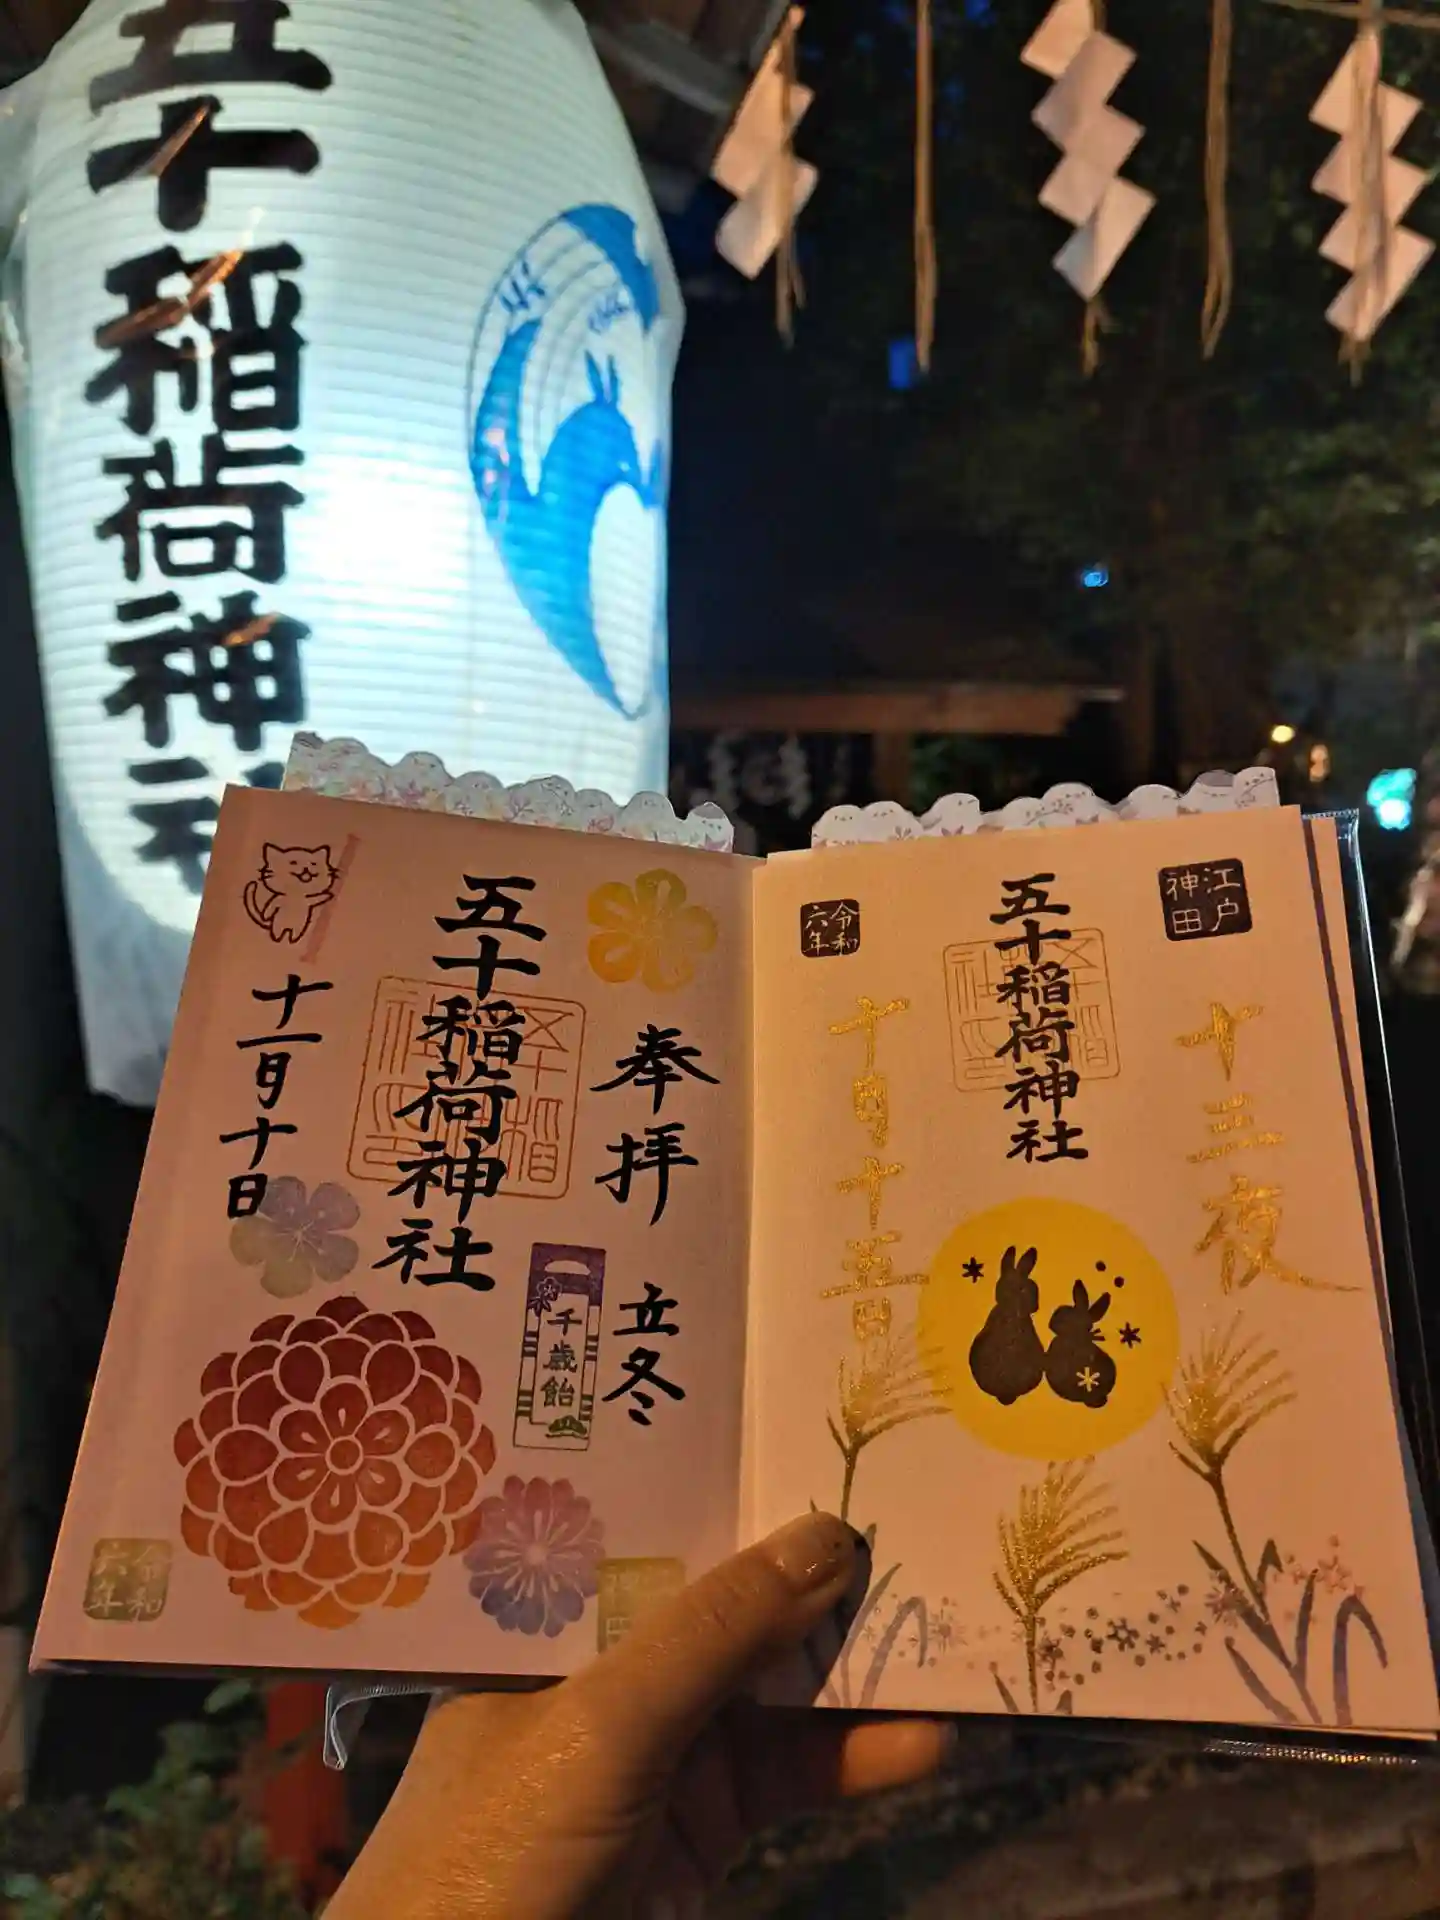 五十稲荷神社
奉拝
立冬
千歳飴
五十稲荷神社
十一月十日
令和
六年
江戸
神田
十三夜
五十稲荷神社
令和
六年
十月十五日